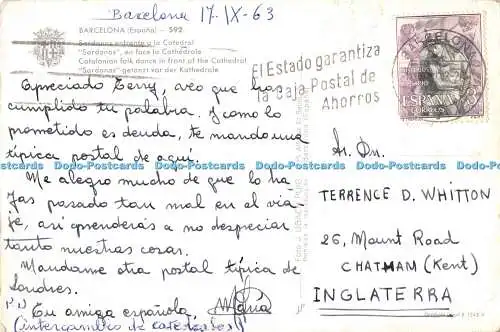 Barcelona 17-IX-63
BARCELONA (España) - 592
Sardanas enfrente a la Catedral
"Sardanas", en face la Cathédrale
Catalonian folk dance in front of the Cathedral
"Sardanas" getanzt vor der Kathedrale
El Estado garantiza
la Caja Postal de
Ahorros
BARCELONA
ESPAÑA
CORREOS
Apreciado Terry, veo que has
cumplido tu palabra. Y como lo
prometido es deuda, te mando una
típica postal de aquí.
Me alegro mucho de que lo ha-
yas pasado tan mal en el via-
je, así aprenderás a no despreciar
tanto nuestras cosas.
Mandame otra postal típica de
Londres.
Tu amiga española,
María
(intercambio de
Sr. Dn.
TERRENCE D. WHITTON
26, Mount Road
CHATHAM (Kent)
INGLATERRA
Dodo-Postcards Dodo-Postcards Dodo-Postcards Dodo-Postcards Dodo-Postcards Dodo-Postcards